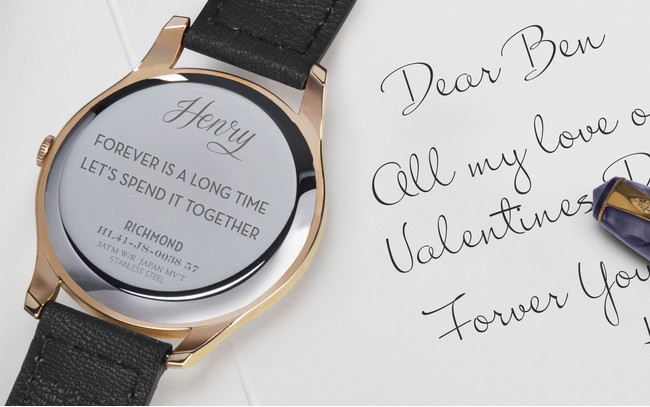 Henry
FOREVER IS A LONG TIME
LET'S SPEND IT TOGETHER
RICHMOND
HL41-JS-0038 57
3ATM W/R JAPAN MV'T
STAINLESS STEEL
Dear Ben
All my love
Valentines
Forver You